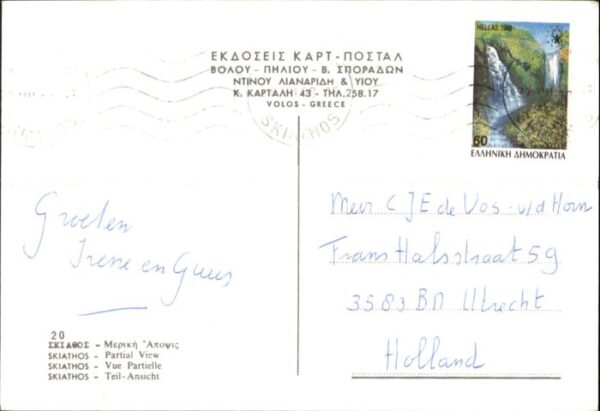 ΕΚΔΟΣΕΙΣ ΚΑΡΤ-ΠΟΣΤΑΛ
ΒΟΛΟΥ - ΠΗΛΙΟΥ - Β. ΣΠΟΡΑΔΩΝ
ΝΤΙΝΟΥ ΛΙΑΝΑΡΙΔΗ & ΥΙΟΥ
Κ. ΚΑΡΤΑΛΗ 43 - ΤΗΛ. 258.17
VOLOS - GREECE
SKIATHOS
HELLAS 1988
60
ΕΛΛΗΝΙΚΗ ΔΗΜΟΚΡΑΤΙΑ
Groeten
Irene en Guus
Mevr CJE de Vos-v/d Horn
Frans Halsstraat 59
3583 BN Utrecht
Holland
20
ΣΚΙΑΘΟΣ - Μερική Ἄποψις
SKIATHOS - Partial View
SKIATHOS - Vue Partielle
SKIATHOS - Teil-Ansicht